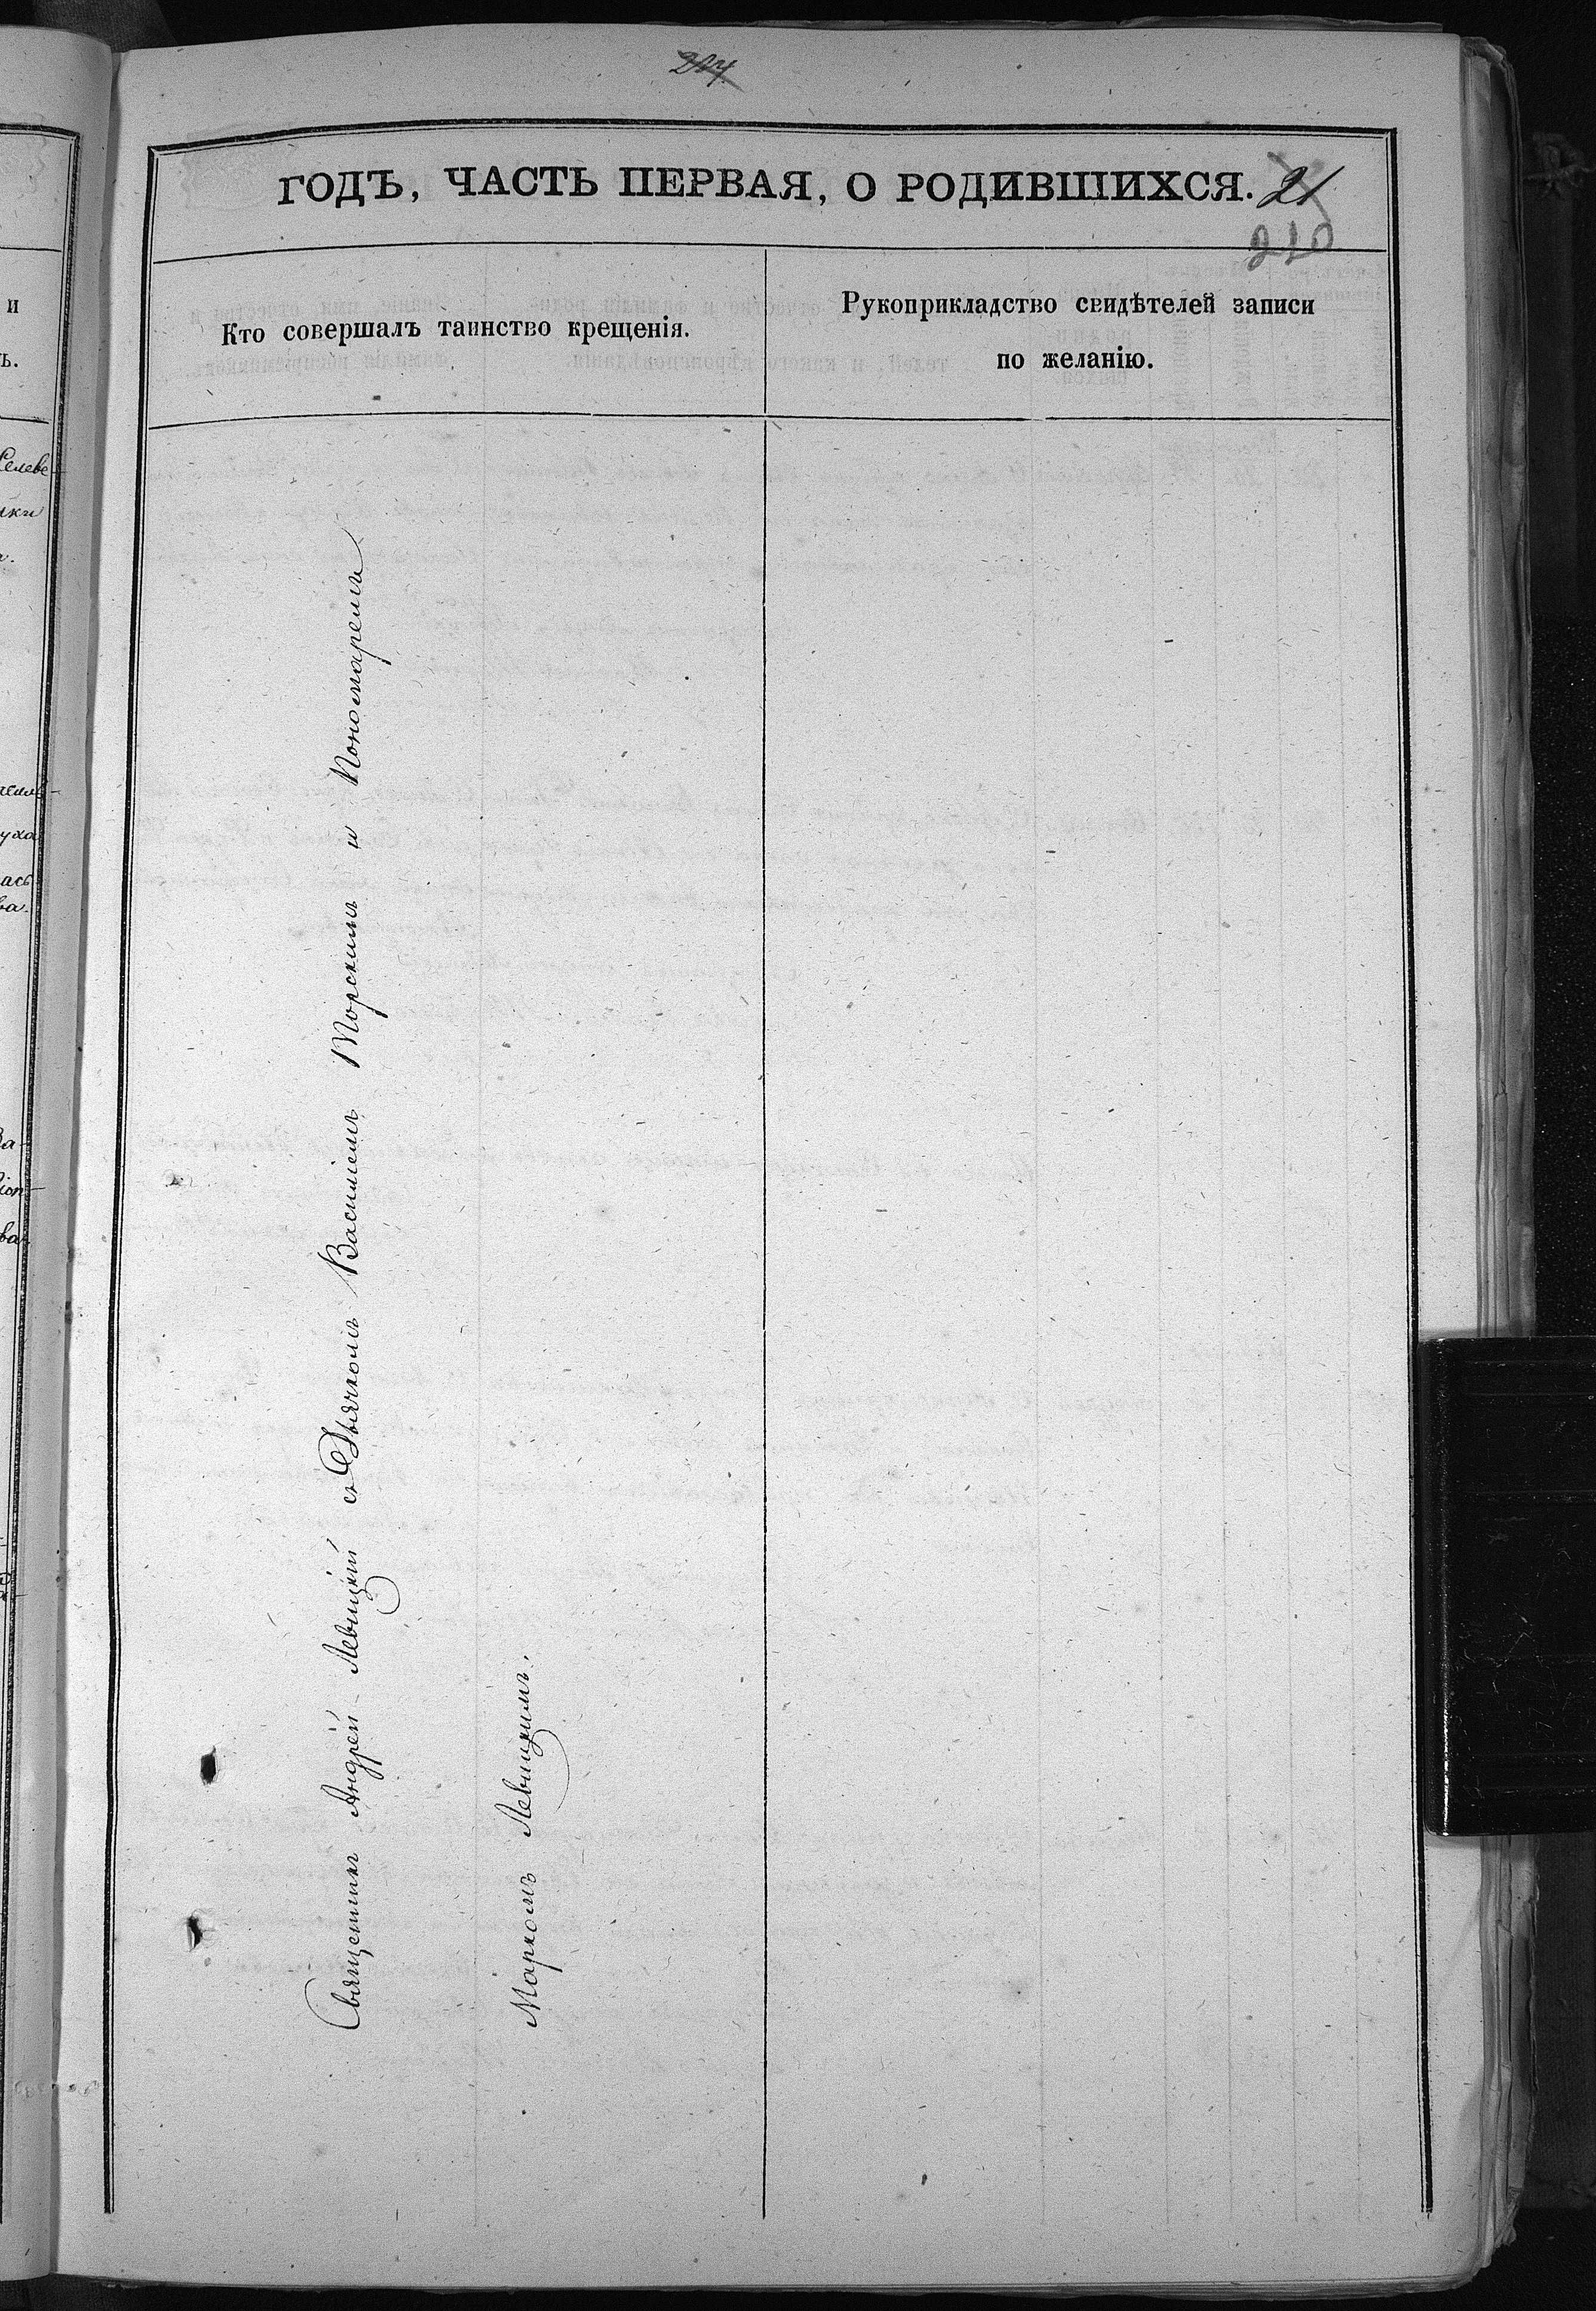 ГОДЪ, ЧАСТЬ ПЕРВАЯ, О РОДИВШИХСЯ. 21
210
Кто совершалъ таинство крещенія.
Рукоприкладство свидѣтелей записи
по желанію.
Священникъ Андрей Левицкій съ Дьячкомъ Василіемъ Торскимъ и Пономаремъ
Маркомъ Левицкимъ.